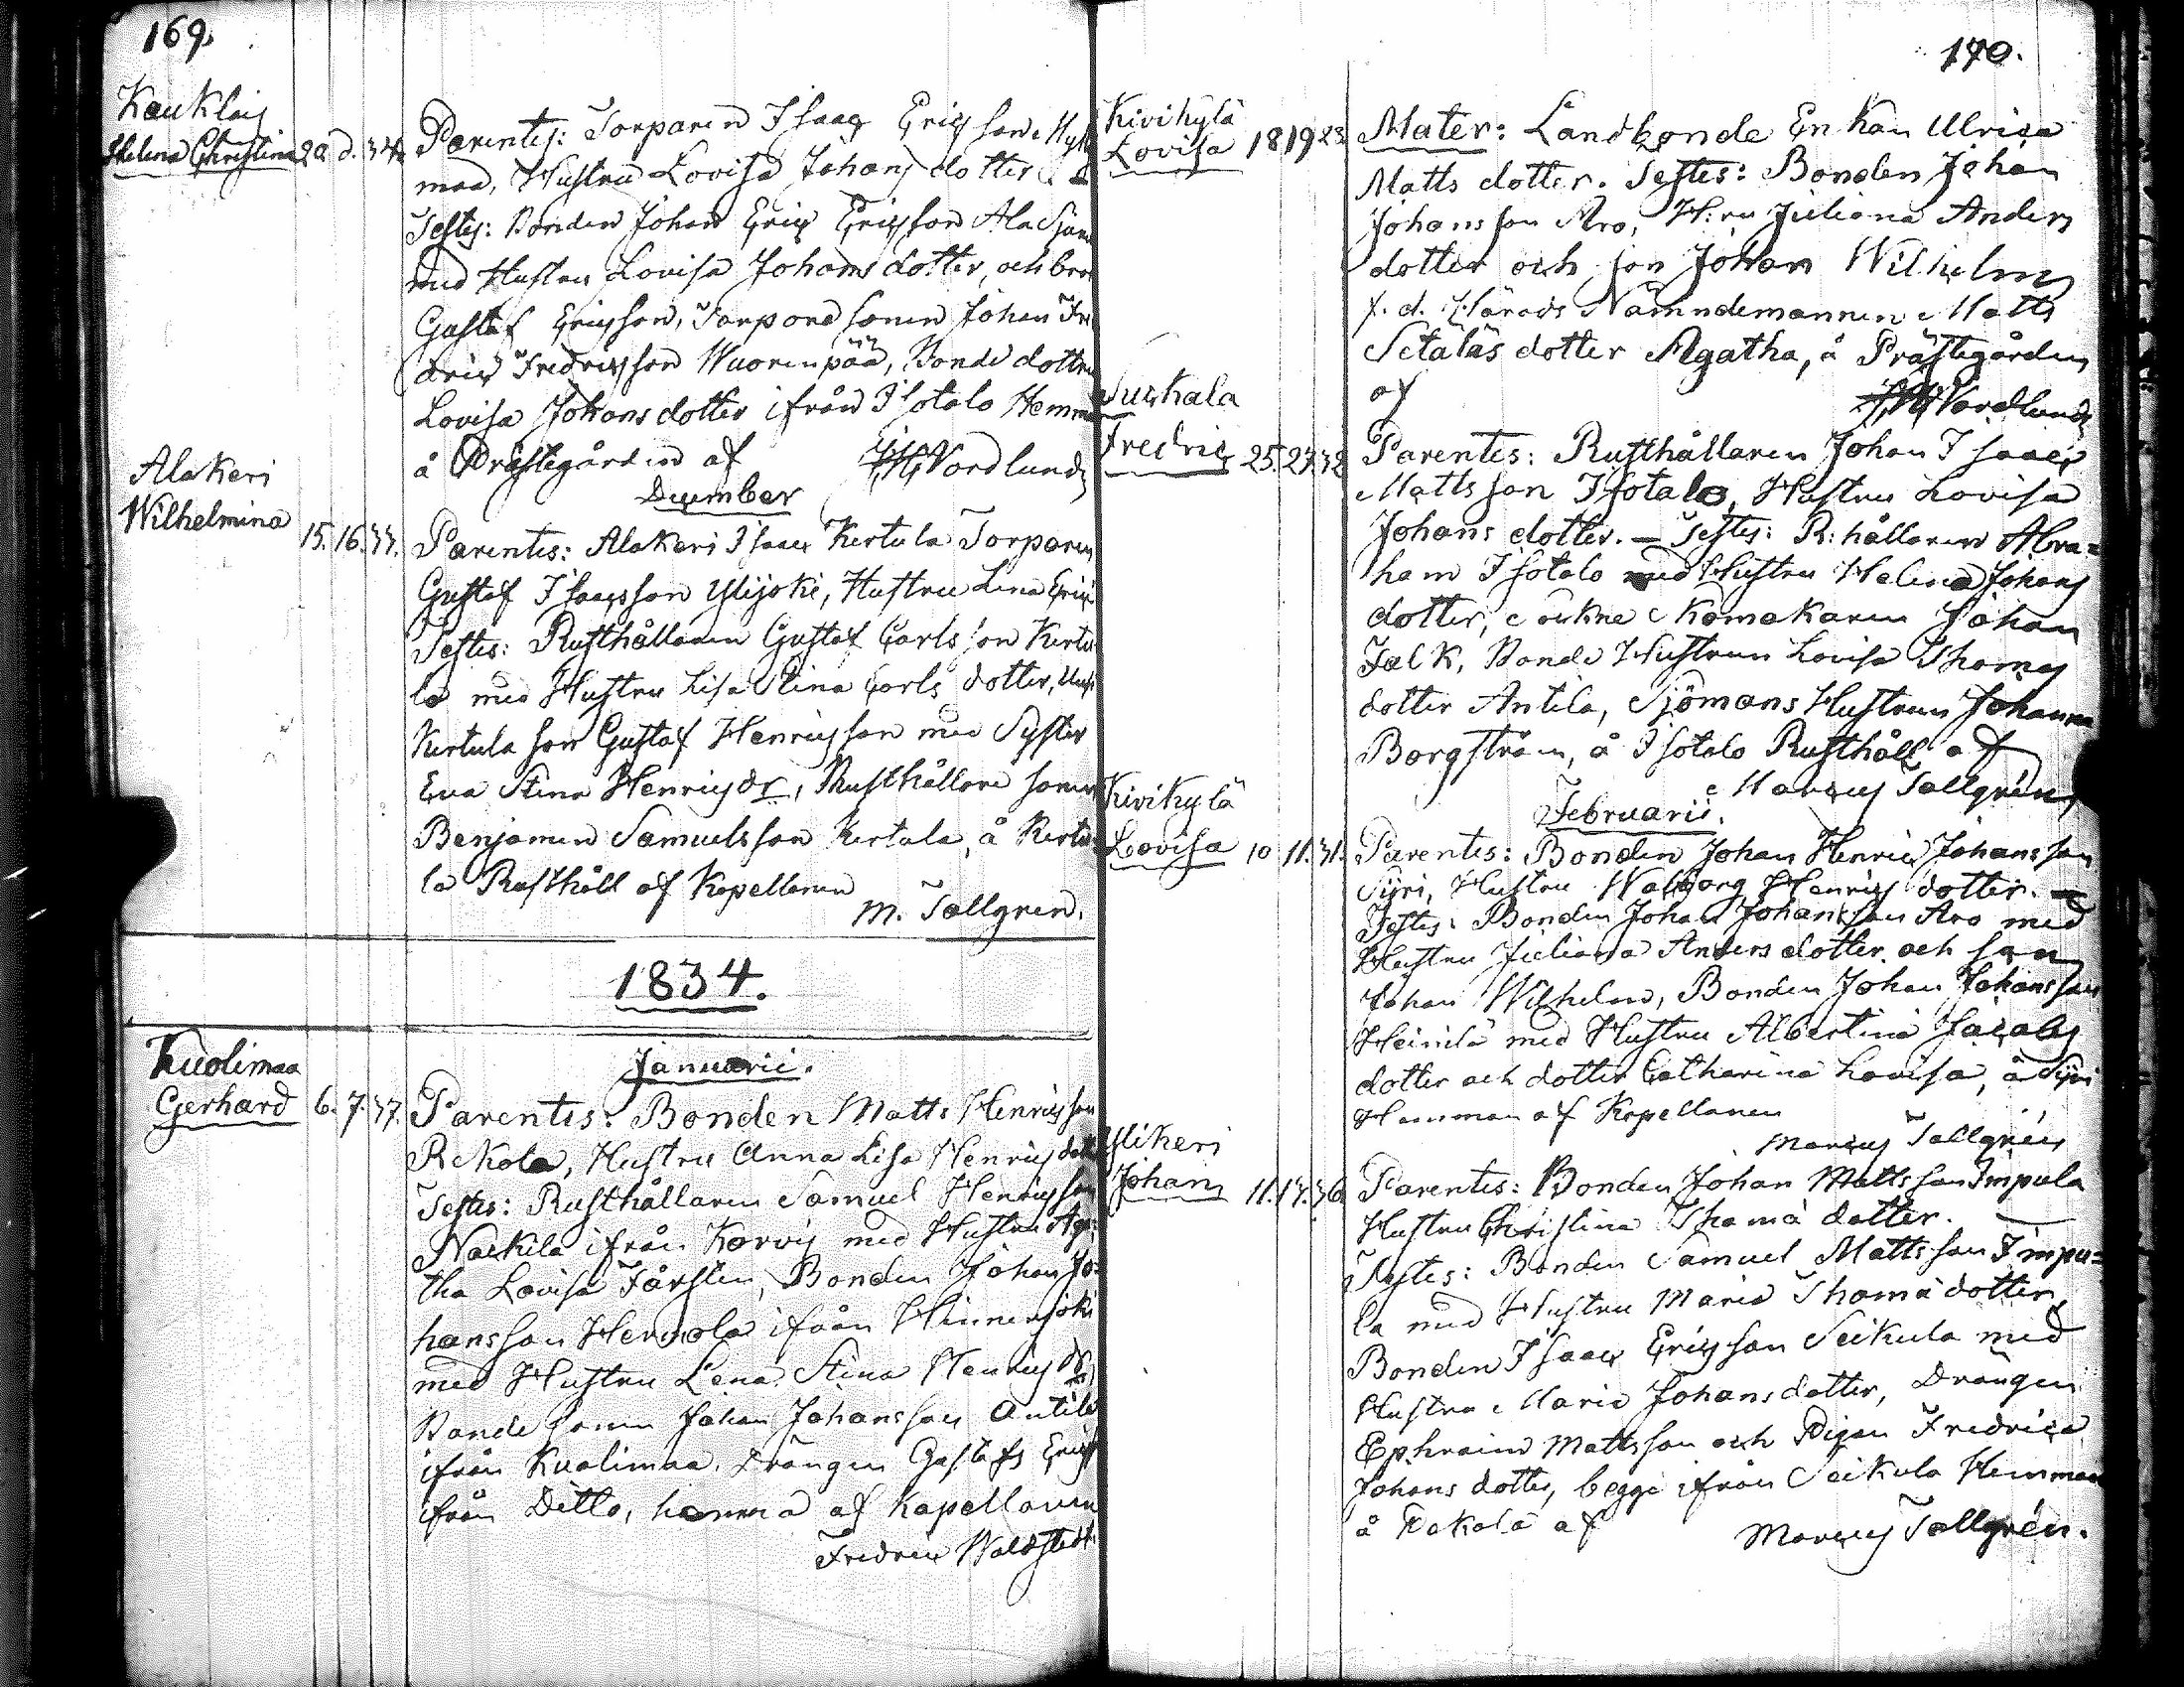 169.
Kauklais
Helena Christina 29 d. 34.
Parentes: Torparen Isaac Ericsson Mylly
maa, Hustru Lovisa Johans dotter.
Testes: Bonden Johan Eric Ericsson Ala
med Hustru Lovisa Johans dotter, och bror
Gustaf Ericsson, Torpare sonen Johan Fre
dric Fredricsson Wuorenpää, Bonde dottren
Lovisa Johans dotter ifrån Isotalo Hemma
å Prästegården af Nordlund
December
Alakeri
Wilhelmina 15. 16. 33.
Parentes: Alakeri Isaac Kertula Torparen
Gustaf Isaacsson Ylijoki, Hustru Lena Erics
Testes: Rusthållaren Gustaf Carlsson Kertu
la med Hustru Lisa Stina Carls dotter,
Kertula son Gustaf Henricsson med Syster
Eva Stina Henricsdr, Rusthållare sonen
Benjamin Samuelsson Kertula, å Kertu
la Rusthåll af Kapellanen
M. Tallgren.
1834.
Januarii.
Kuolimaa
Gerhard 6. 7. 37.
Parentes: Bonden Matts Henricsson
Rekola, Hustru Anna Lisa Henrics dott
Testes: Rusthållaren Samuel Henricsson
Naekilä ifrån Korvis med Hustru Aga
tha Lovisa Forsten, Bonden Johan Jo=
hansson Hermola ifrån Hinnerjoki
med Hustru Lena Stina Henricsdr
Bonde sonen Johan Johansson Antila
ifrån Kuolimaa, Drängen Gustafs Erics
ifrån Ditto, hemma af Kapellanen
Fredric Waldstedt.
170.
Kivikylä
Lovisa 18 19 23
Mater: Landbonde Enkan Ulrica
Matts dotter. Testes: Bonden Johan
Johansson Aro, H:ru Juliana Anders
dotter och son Johan Wilhelm
f. d. Härads Nämndemannen Matts
Setäläs dotter Agatha, å Prästegården
af Nordlund
Suukala
Fredric 25. 27. 32
Parentes: Rusthållaren Johan Isaac
Mattsson Isotalo, Hustru Lovisa
Johans dotter. — Testes: R:hållaren Abra=
ham Isotalo med Hustru Helena Johans
dotter, Sockne Skomakaren Johan
Falk, Bonde Hustrun Lovisa Thomas
dotter Antila, Sjömans Hustrun Johanna
Borgström, å Isotalo Rusthåll af
Marcus Tallgrén
Februarii.
Kivikylä
Lovisa 10 11. 31.
Parentes: Bonden Johan Henric Johansson
Syri, Hustru Walborg Henrics dotter. —
Testes: Bonden Johan Johansson Aro med
Hustru Juliana Anders dotter och son
Johan Wilhelm, Bonden Johan Johansson
Heinilä med Hustru Albertina Jacobs
dotter och dotter Catharina Lovisa, å Syri
Hemman af Kapellanen
Marcus Tallgrén
Ylikeri
Johan 11. 17. 36
Parentes: Bonden Johan Mattsson Impola
Hustru Christina Thomä dotter. —
Testes: Bonden Samuel Mattsson Impo=
la med Hustru Maria Thomä dotter,
Bonden Isaac Ericsson Seikula med
Hustru Maria Johans dotter, Drängen
Ephraim Mattsson och Pigan Fredrica
Johans dotter, begge ifrån Seikula Hemman
å Kokola af
Marcus Tallgrén.